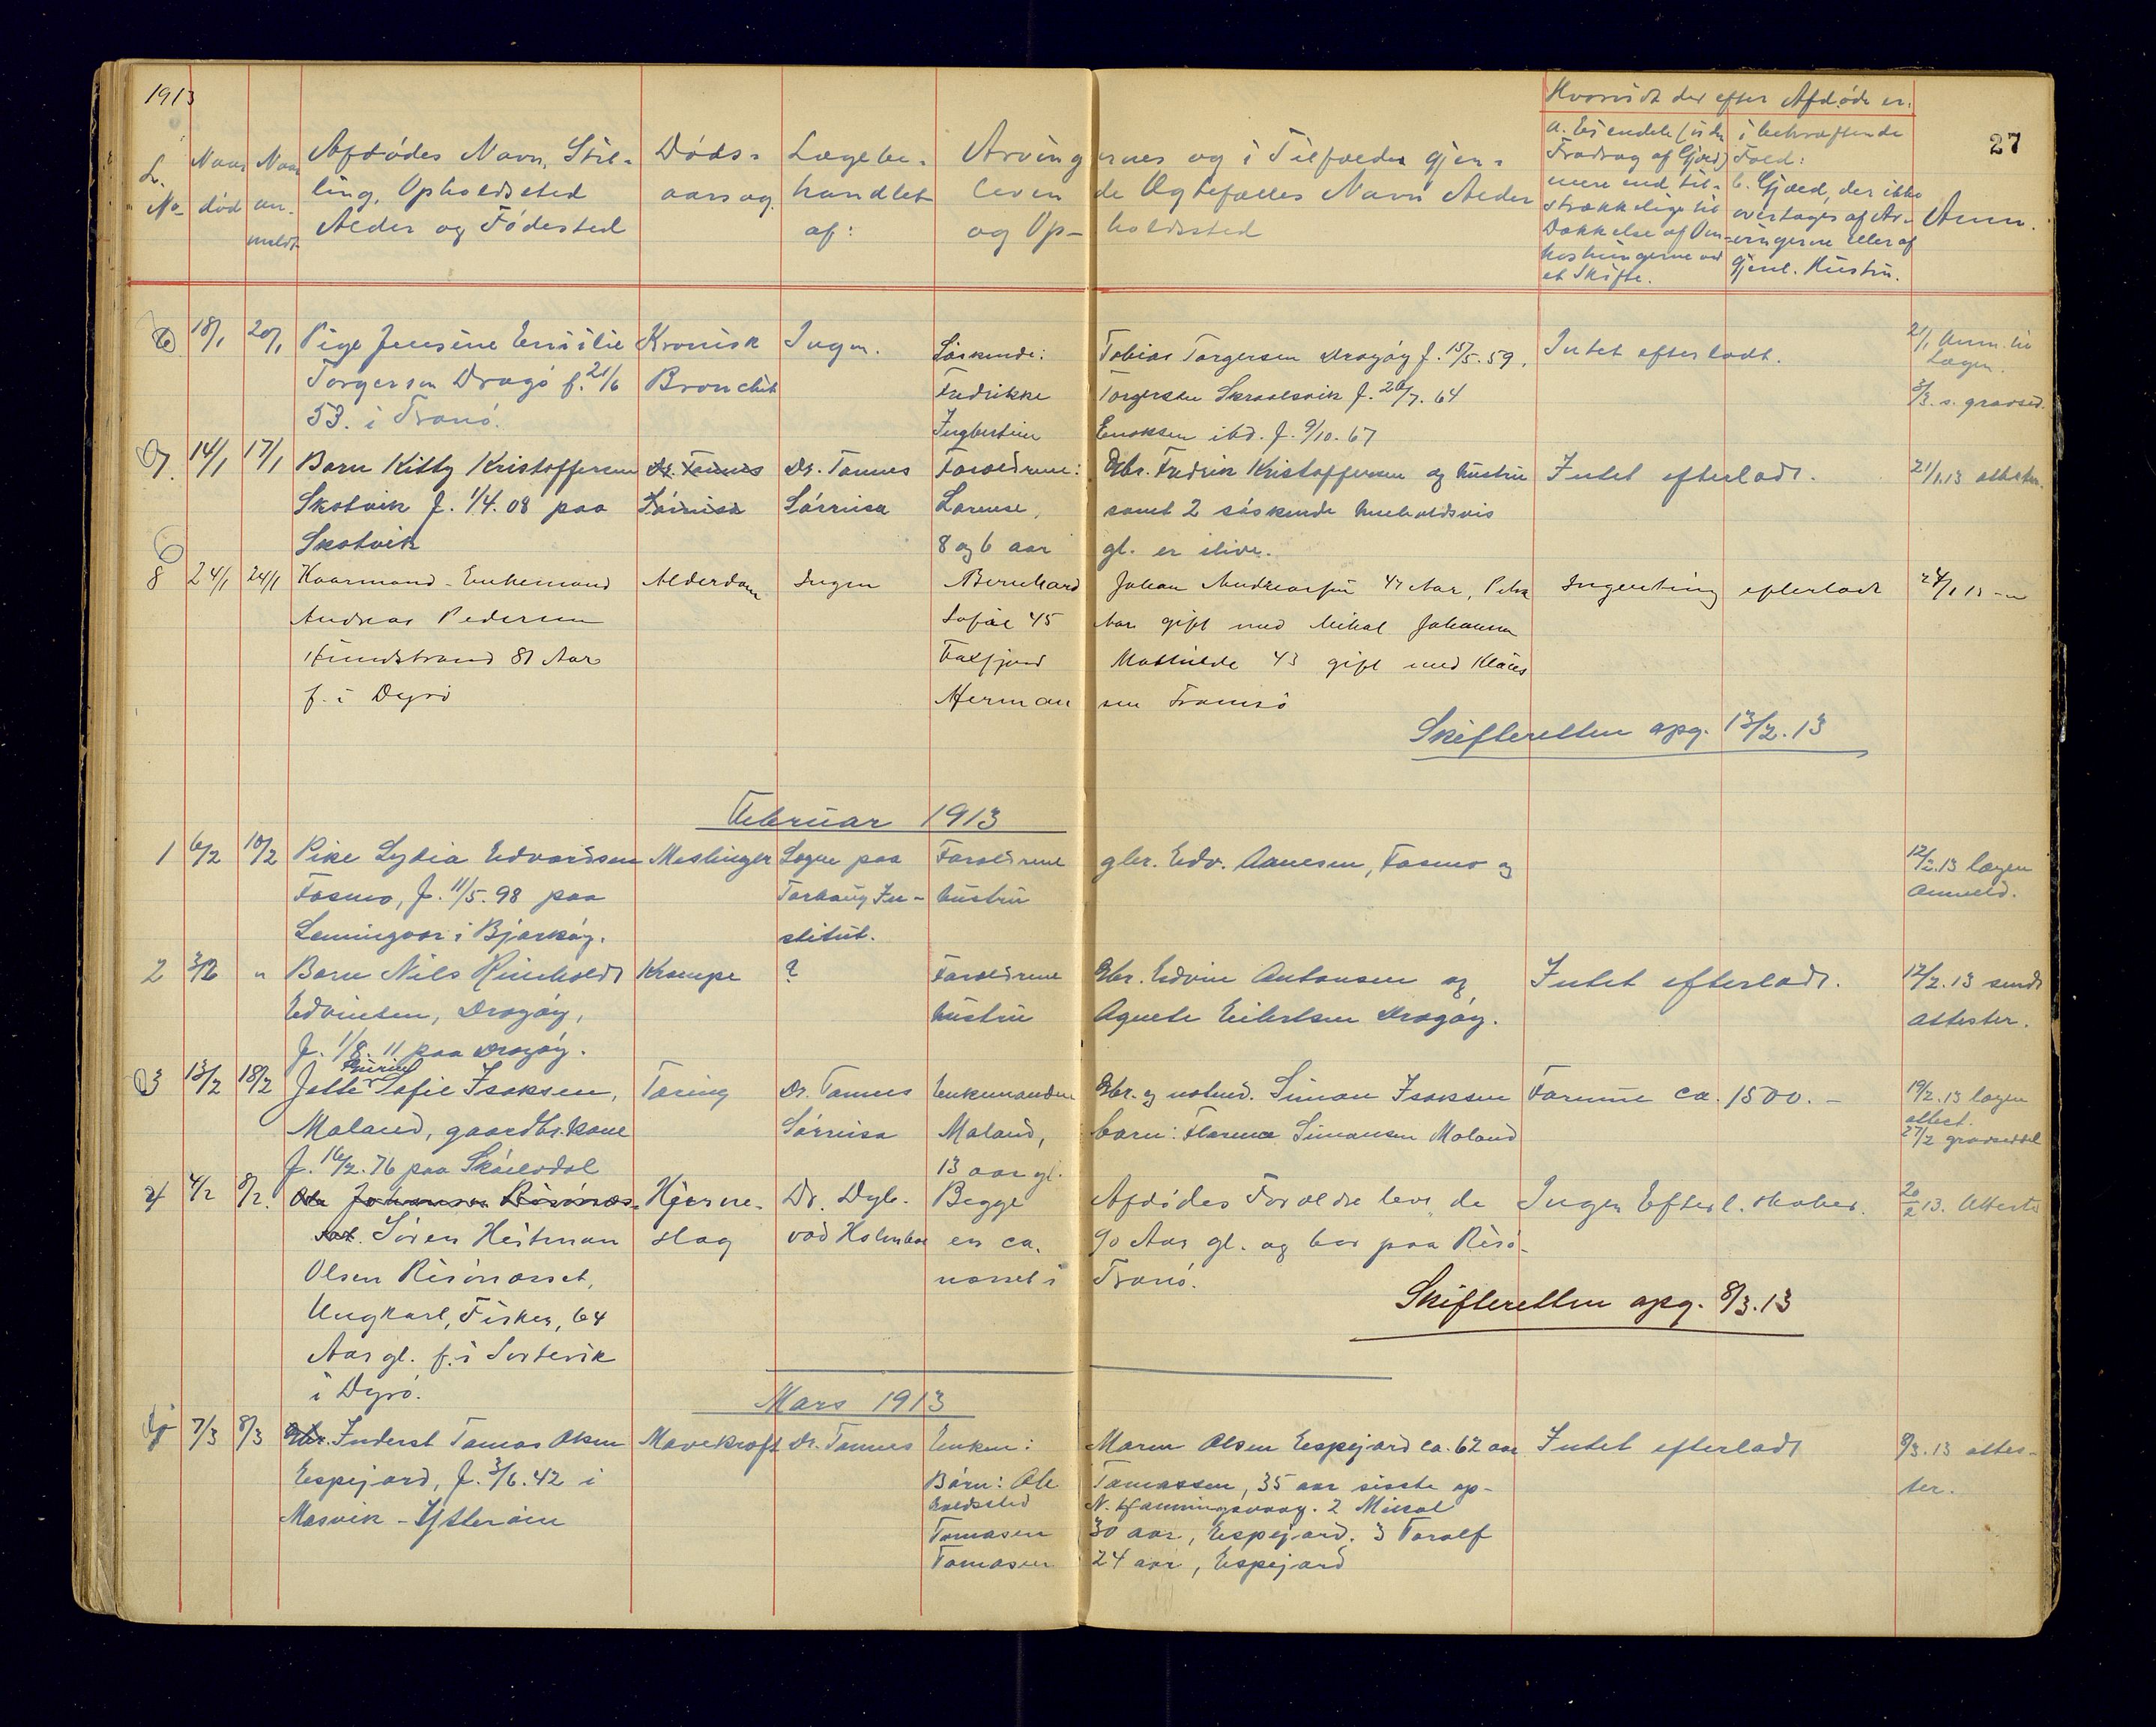 1913
27
L. No
Naar død
Naar anmeldt
Afdødes Navn, Stilling, Opholdssted
Alder og Fødested
Dødsaarsag
Lægebehandlet af:
Arvingernes og i Tilfælde gjenlevende Ægtefælles Navn Alder og Opholdssted
Hvorvidt der efter Afdøde er:
a. Eiendele (uden
Fradrag af Gjæld)
mere end tilstrækkelige til
Dækkelse af Omkostningerne ved
et Skifte.
i bekræftende
Fald:
b. Gjæld, der ikke
overtages af Arvingerne eller af
Gjenl. Hustru.
Anm.
6 18/1 20/1 Pige Jensine Emilie Kronisk Ingen. Søskende: Tobias Torgersen Drøgøy f. 15/5. 59. Intet efterladt. 21/1 Anm. til
Torgersen Drøgø f. 21/6 Bronchit Fredrikke Torgersen Skrolsvik f. 20/7. 64 Lægen.
53. i Tranø. Ingbertine Enoksen ibd. f. 9/10. 67 3/3. s. gravsed.
7. 14/1 17/1 Barn Kitty Kristoffersen Dr. Tønnes Dr. Tønnes Forældrene: Gbr. Fredrik Kristoffersen og hustru Intet efterladt. 21/1.13 attester.
Skotvik f. 1/4. 08 paa Sørreisa Sørreisa Lorense, samt 2 søskende henholdsvis
Skotvik 8 og 6 aar gl. er ilive.
8 24/1 24/1 Kaarmand - Enkemand Alderdom Ingen Bernhard Johan Andreassen 47 Aar, Petra Ingenting efterladt 24/1 13
Andreas Pedersen Sofie 45 Aar gift med Mikal Johansen
Hundstrand 81 Aar Faxfjord Mathilde 43 gift med Klaus
f. i Dyrø Hermansen Tromsø
Skifteretten opg. 13/2. 13
Februar 1913
1 6/2 10/2 Pike Lydia Edvardsen Meslinger Sogne paa Forældrene gbr. Edv. Aanesen, Fosmo og 12/2.13 lægen
Fosmo, f. 11/5. 98 paa Torhaug In- hustru anmeld.
Lemingvær i Bjarkøy. stitut.
2 3/2 " Barn Nils Reinholdt Krampe ? Forældrene Gbr. Edvin Antonsen og Intet efterladt. 12/2. 13 sendt
Edvinsen, Drøgøy, hustru Agnete Eilertsen Drøgøy. attester.
f. 1/8. 11 paa Drøgøy.
3 13/2 18/2 Jette Sofie Isaksen, Tæring Dr. Tønnes Enkemanden Gbr. og notmd. Simon Isaksen Formue ca. 1500. - 19/2. 13 lægen
Moland, gaardbr.kone Sørreisa Moland, barn: Florence Simonsen Moland attest.
f. 16/2. 76 paa Skøelvdal 13 aar gl. 27/2 gravseddel
4 4/2 8/2. Ole Johansen Risønæs- Hjerne- Dr. Dyb- Begge Afdødes Forældre lever, de Ingen Efterl. skaber. 20/2 13. Attester
set. Søren Heitman slag vad Holmboe er ca. 90 Aar gl. og bor paa Risø-
Olsen Risønæsset, næsset i Tranø.
Ungkarl, Fisker, 64
Aar gl. f. i Sørtevik
i Dyrø.
Skifteretten opg. 8/3. 13
Mars 1913
7/3 8/3 Gbr. Inderst Tomas Olsen Mavekræft Dr. Tønnes Enken: Maren Olsen Espejord ca. 62 aar Intet efterladt 9/3. 13 attes-
Espejord, f. 3/6. 42 i Børn: Ole Tomassen, 35 aar sisste op- ter.
Masvik - Ytterøien holdssted N. Hfanningsvaag. 2 Mikal
Tomasen 30 aar, Espejord. 3 Toralf
Tomasen 24 aar, Espejord